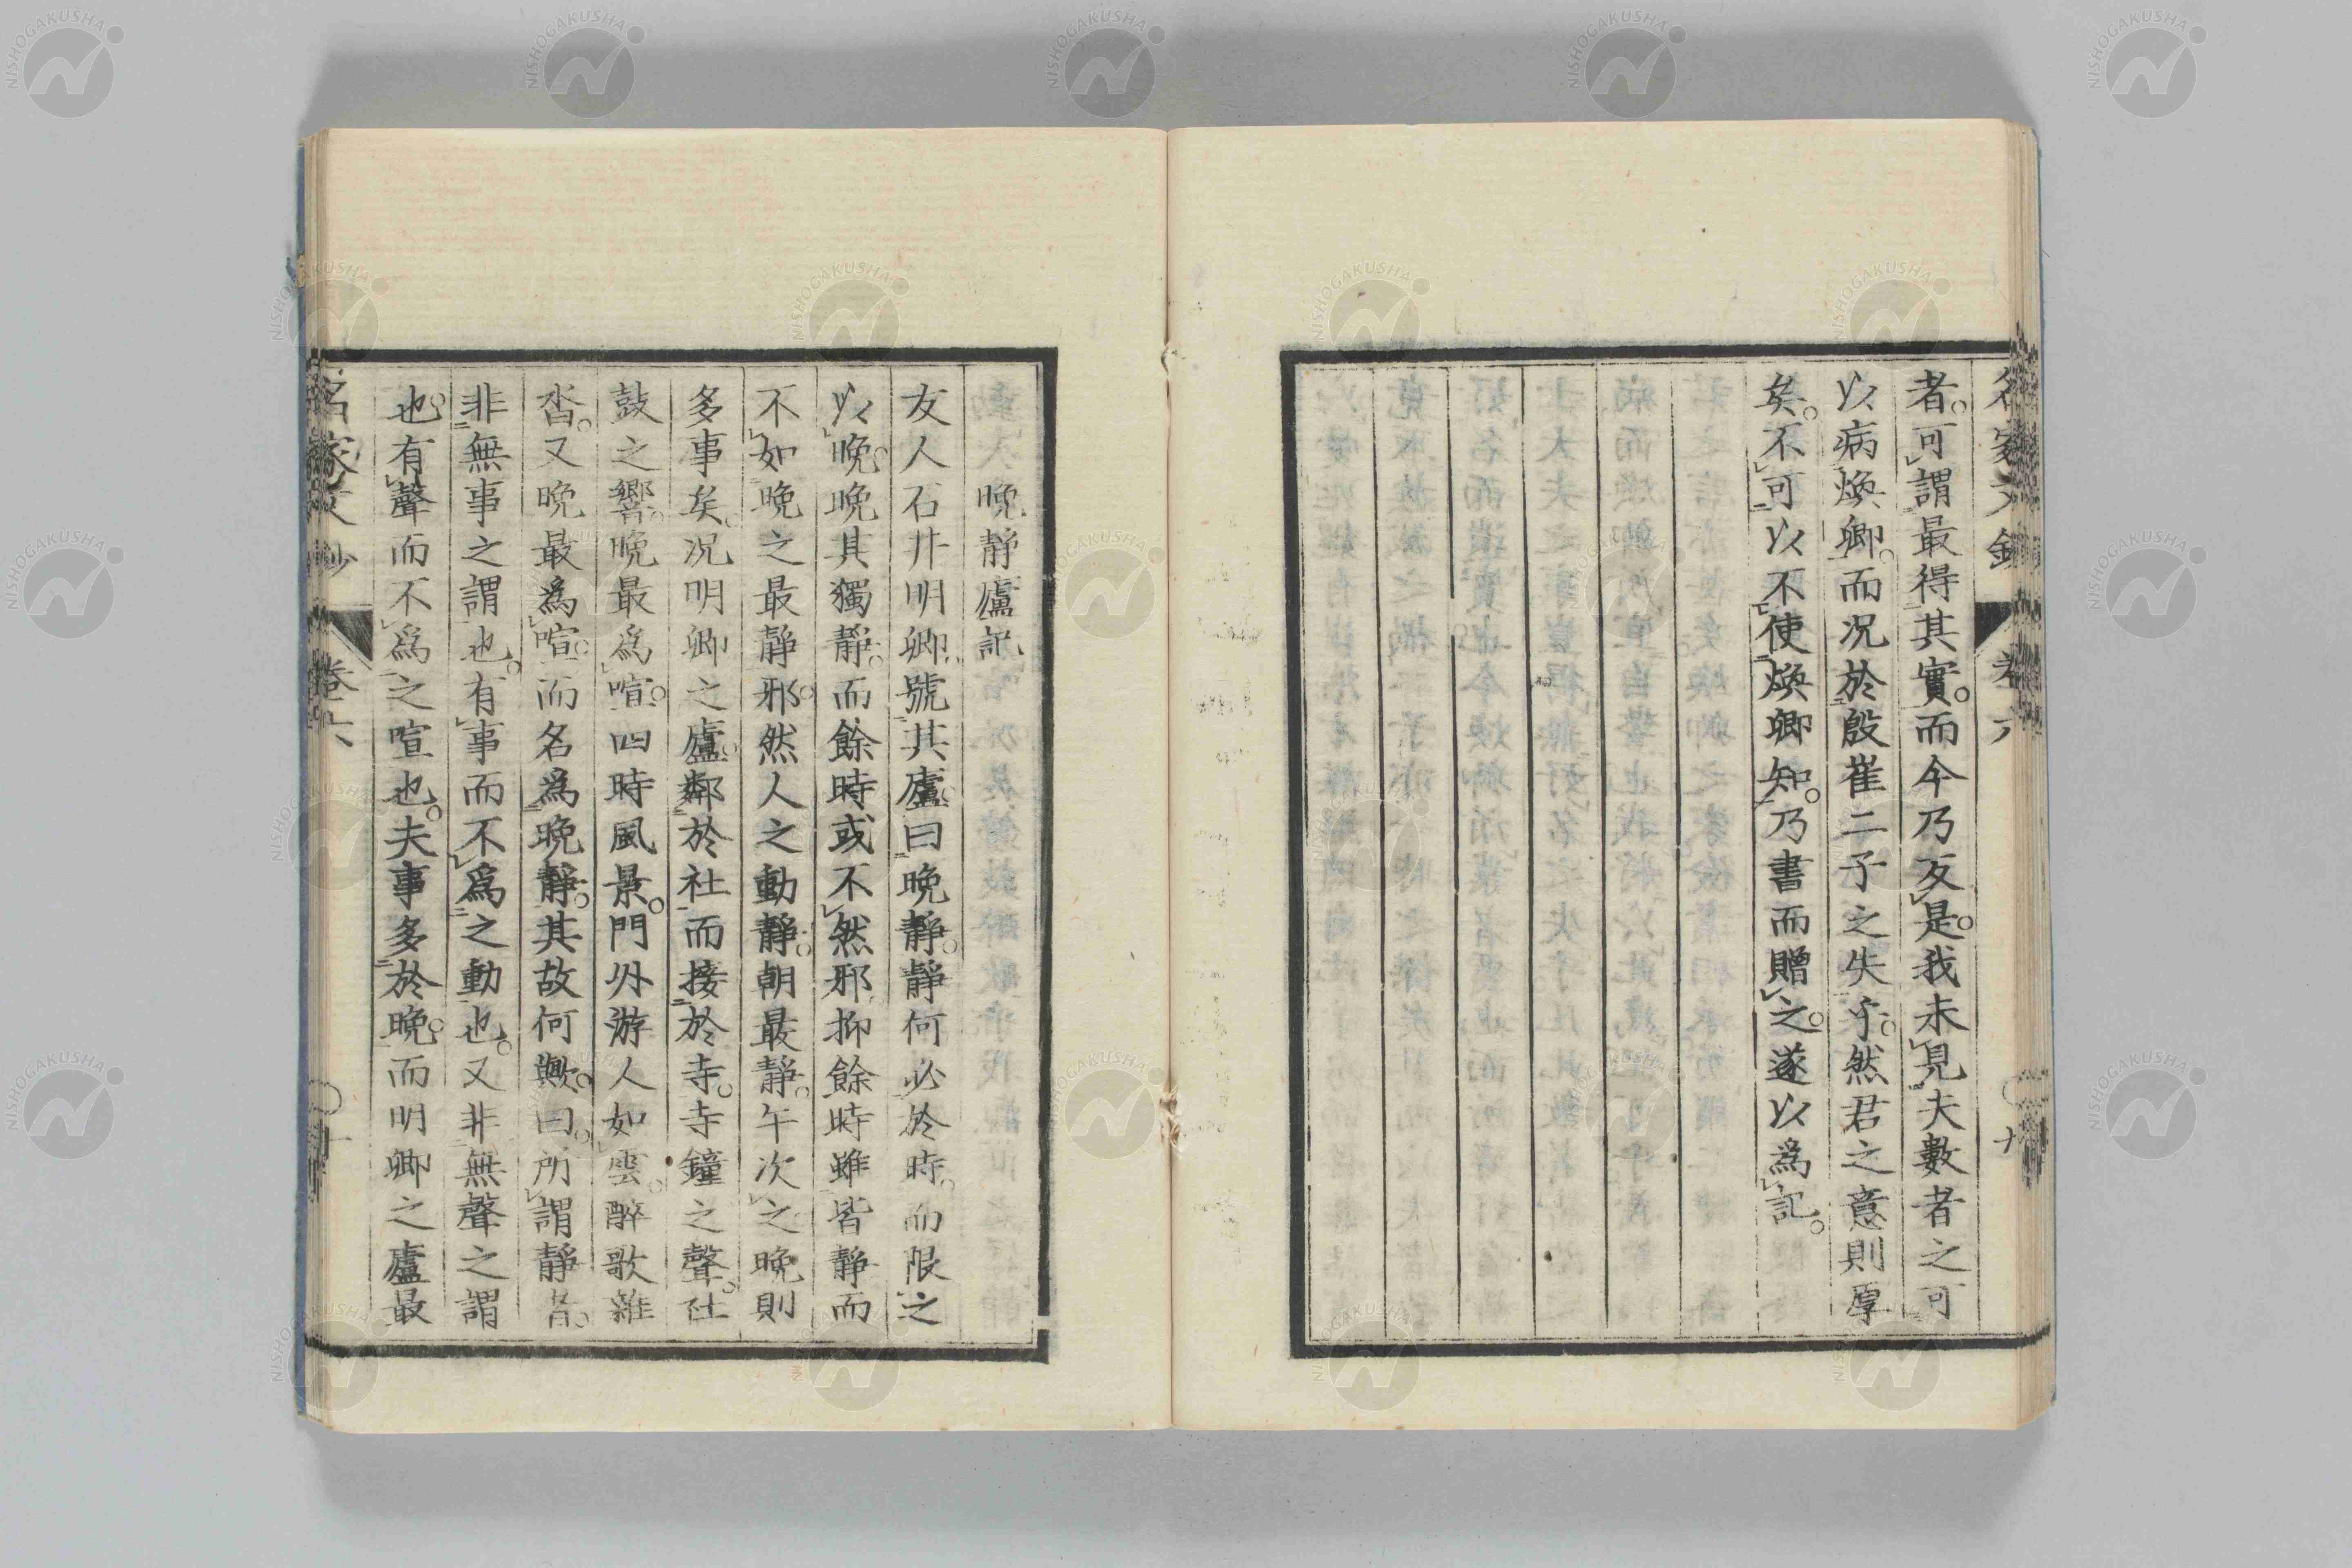 名家文鈔 卷六 〇九
者。可謂最得其實。而今乃反是。我未見夫數者之可
以病煥卿。而況於殷崔二子之失乎。然君之意則厚
矣。不可以不使煥卿知。乃書而贈之。遂以爲記。
晩靜廬記
友人石井明卿。號其廬曰晩靜。靜何必於時。而限之
以晩。晩其獨靜。而餘時或不然邪。抑餘時雖皆靜而
不如晩之最靜邪。然人之動靜。朝最靜。午次之。晩則
多事矣。況明卿之廬。鄰於社而接於寺。寺鐘之聲。社
鼓之響。晩最爲喧。四時風景。門外游人如雲。醉歌雜
沓。又晩最爲喧。而名爲晩靜。其故何歟。曰。所謂靜者。
非無事之謂也。有事而不爲之動也。又非無聲之謂
也。有聲而不爲之喧也。夫事多於晩。而明卿之廬最
名家文鈔 卷六 〇十
NISHOGAKUSHA